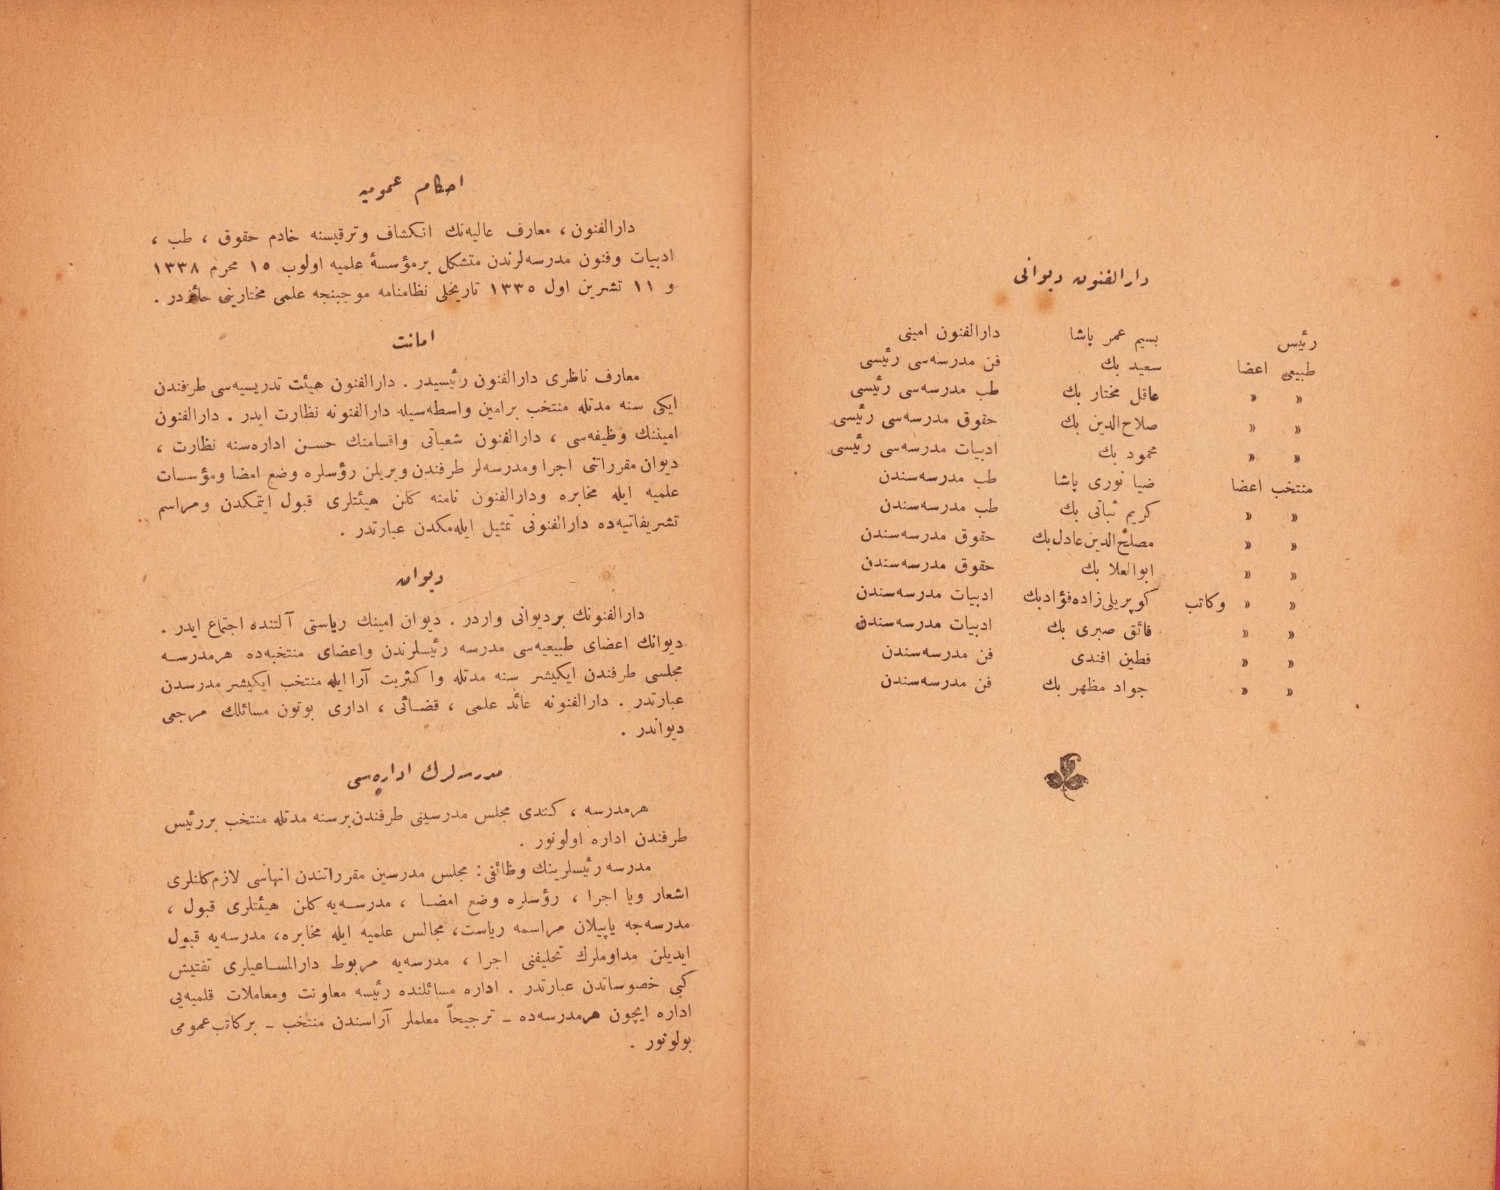 دارالفنون ديوانى
رئيس بسيم عمر پاشا دارالفنون امينى
طبيعى اعضا سعيد بك فن مدرسه‌سى رئيسى
» » عاقل مختار بك طب مدرسه‌سى رئيسى
» » صلاح‌الدين بك حقوق مدرسه‌سى رئيسى
» » محمود بك ادبيات مدرسه‌سى رئيسى
منتخب اعضا ضيا نورى پاشا طب مدرسه‌سندن
» » كريم ثباتى بك طب مدرسه‌سندن
» » مصلح‌الدين عادل بك حقوق مدرسه‌سندن
» » ابوالعلا بك حقوق مدرسه‌سندن
» » وكاتب كوپريلى زاده فؤاد بك ادبيات مدرسه‌سندن
» » فائق صبرى بك ادبيات مدرسه‌سندن
» » فطين افندى فن مدرسه‌سندن
» » جواد مظهر بك فن مدرسه‌سندن
احكام عموميه
دارالفنون ، معارف عاليه‌نك انكشاف وترقيسنه خادم حقوق ، طب ،
ادبيات وفنون مدرسه‌لرندن متشكل برمؤسسهٔ علميه اولوب ١٥ محرم ١٣٣٨
و ١١ تشرين اول ١٣٣٥ تاريخلى نظامنامه موجبنجه علمى مختاريتى حائزدر .
امانت
معارف ناظرى دارالفنون رئيسيدر . دارالفنون هيئت تدريسيه‌سى طرفندن
ايكى سنه مدتله منتخب برامين واسطه‌سيله دارالفنونه نظارت ايدر . دارالفنون
امينك وظيفه‌سى ، دارالفنون شعباتى واقسامنك حسن اداره‌سنه نظارت ،
ديوان مقرراتنى اجرا ومدرسه‌لر طرفندن ويريلن رؤسلره وضع امضا ومؤسسات
علميه ايله مخابره ودارالفنون نامنه كلن هيئتلرى قبول ايتمكدن ومراسم
تشريفاتيه‌ده دارالفنونى تمثيل ايله‌مكدن عبارتدر .
ديوان
دارالفنونك برديوانى واردر . ديوان امينك رياستى آلتنده اجتماع ايدر .
ديوانك اعضاى طبيعيه‌سى مدرسه رئيسلرندن واعضاى منتخبه‌ده هرمدرسه
مجلسى طرفندن ايكيشر سنه مدتله واكثريت آرا ايله منتخب ايكيشر مدرسدن
عبارتدر . دارالفنونه عائد علمى ، قضائى ، ادارى بوتون مسائلك مرجعى
ديواندر .
مدرسه‌لرك اداره‌سى
هرمدرسه ، كندى مجلس مدرسينى طرفندن برسنه مدتله منتخب بررئيس
طرفندن اداره اولونور .
مدرسه رئيسلرينك وظائفى : مجلس مدرسين مقرراتندن انهاسى لازم‌كلنلرى
اشعار ويا اجرا ، رؤسلره وضع امضا ، مدرسه‌يه كلن هيئتلرى قبول ،
مدرسه‌جه ياپيلان مراسمه رياست، مجالس علميه ايله مخابره، مدرسه‌يه قبول
ايديلن مداوملرك تحليفنى اجرا ، مدرسه‌يه مربوط دارالمساعيلرى تفتيش
كبى خصوصاتدن عبارتدر . اداره مسائلنده رئيسه معاونت ومعاملات قلميه‌يى
اداره ايچون هرمدرسه‌ده – ترجيحاً معلملر آراسندن منتخب – بركاتب عمومى
بولونور .